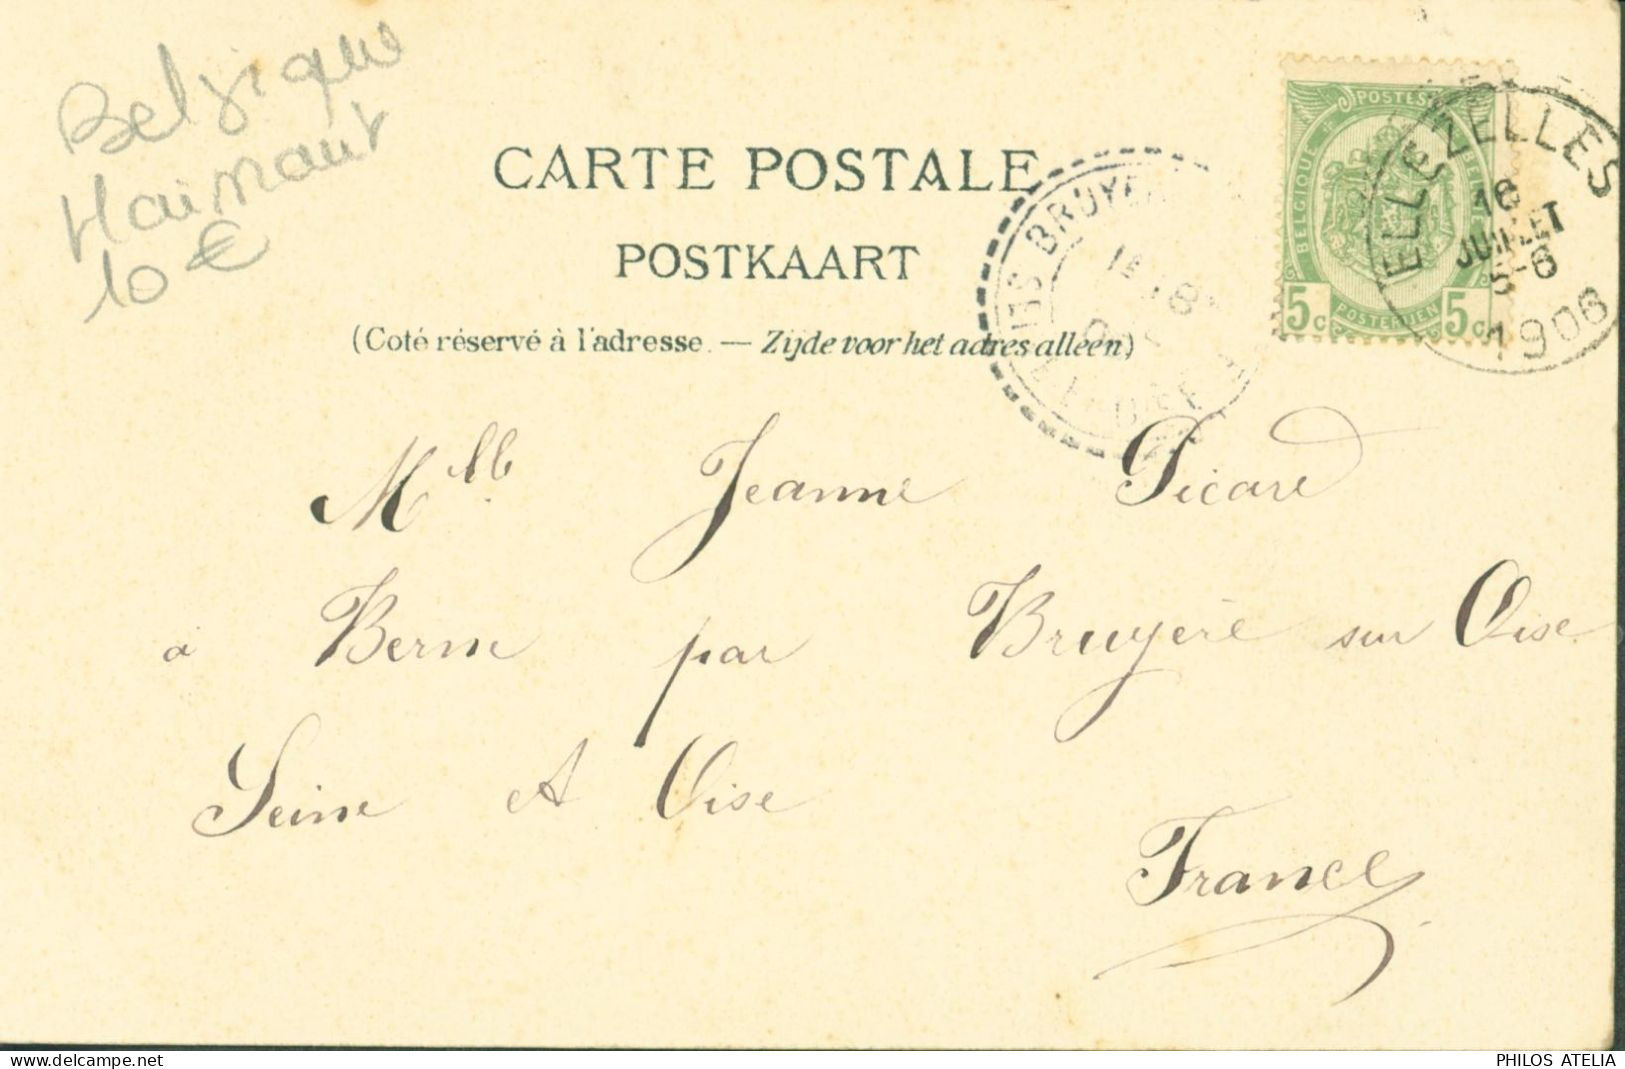 Belgique
Hainaut
10 €
CARTE POSTALE
POSTKAART
(Coté réservé à l'adresse. — Zijde voor het adres alléén)
POSTES
BELGIQUE
BELGIE
POSTERIJEN
5c 5c
ELLEZELLES
16
JUILLET
5-6
1906
BRUYE
Mlle Jeanne Picard
à Berne par Bruyère sur Oise
Seine et Oise
France
PHILOS ATELIA